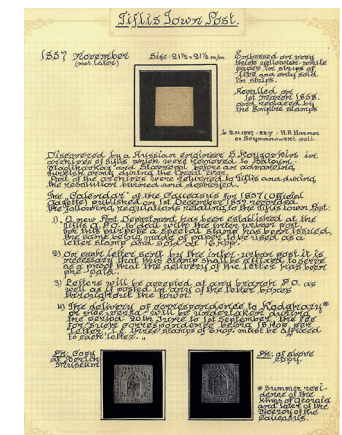 Tiflis Town Post.
1857 November
(not later)
Size - 21½ x 21½ m/m
Embossed on very
thick yellowish-white
paper in strips of
five and only sold
in strips.
Recalled on
1st March 1858.
and replaced by
the Empire stamps
ex Szymanowski coll.
Discovered by a Russian engineer S. Kouzovkin in
archives of Tiflis which were removed to
and Stavropol before advancing
Turkish army during the Great War.
Part of the archives were returned to Tiflis and during
the revolution burned and destroyed.
The "Calendar" of the Caucasus for 1857 (Official
Gazette) published on 1st December 1857 recorded
the following regulations relating to the Tiflis Town Post:
1) A new Post Department has been established at the
Tiflis G.P.O. to deal with the inter urban post.
For this purpose a special stamp has been issued,
the same being made of paper to be used as a
letter stamp and sold at 6 kop.
2) On each letter sent by the inter-urban post it is
necessary that this stamp shall be affixed to serve
as a proof that the delivery of the letter has been
pre-paid.
3) Letters will be accepted at any branch P.O. as
well as if posted in any of the letter boxes
throughout the town.
4) The delivery of correspondence to Kodgary*
or vice versa will be undertaken during
the period 20th June to 1st September, the fee
for such correspondence being 18 kop. per
letter, i.e. three stamps of 6 kop. must be affixed
to each letter.
Ph. Copy
of Berlin
Museum
Ph: of above
copy
* Summer resi-
dence of the
Kings of Georgia
and later of the
Viceroy of the
Caucasus.